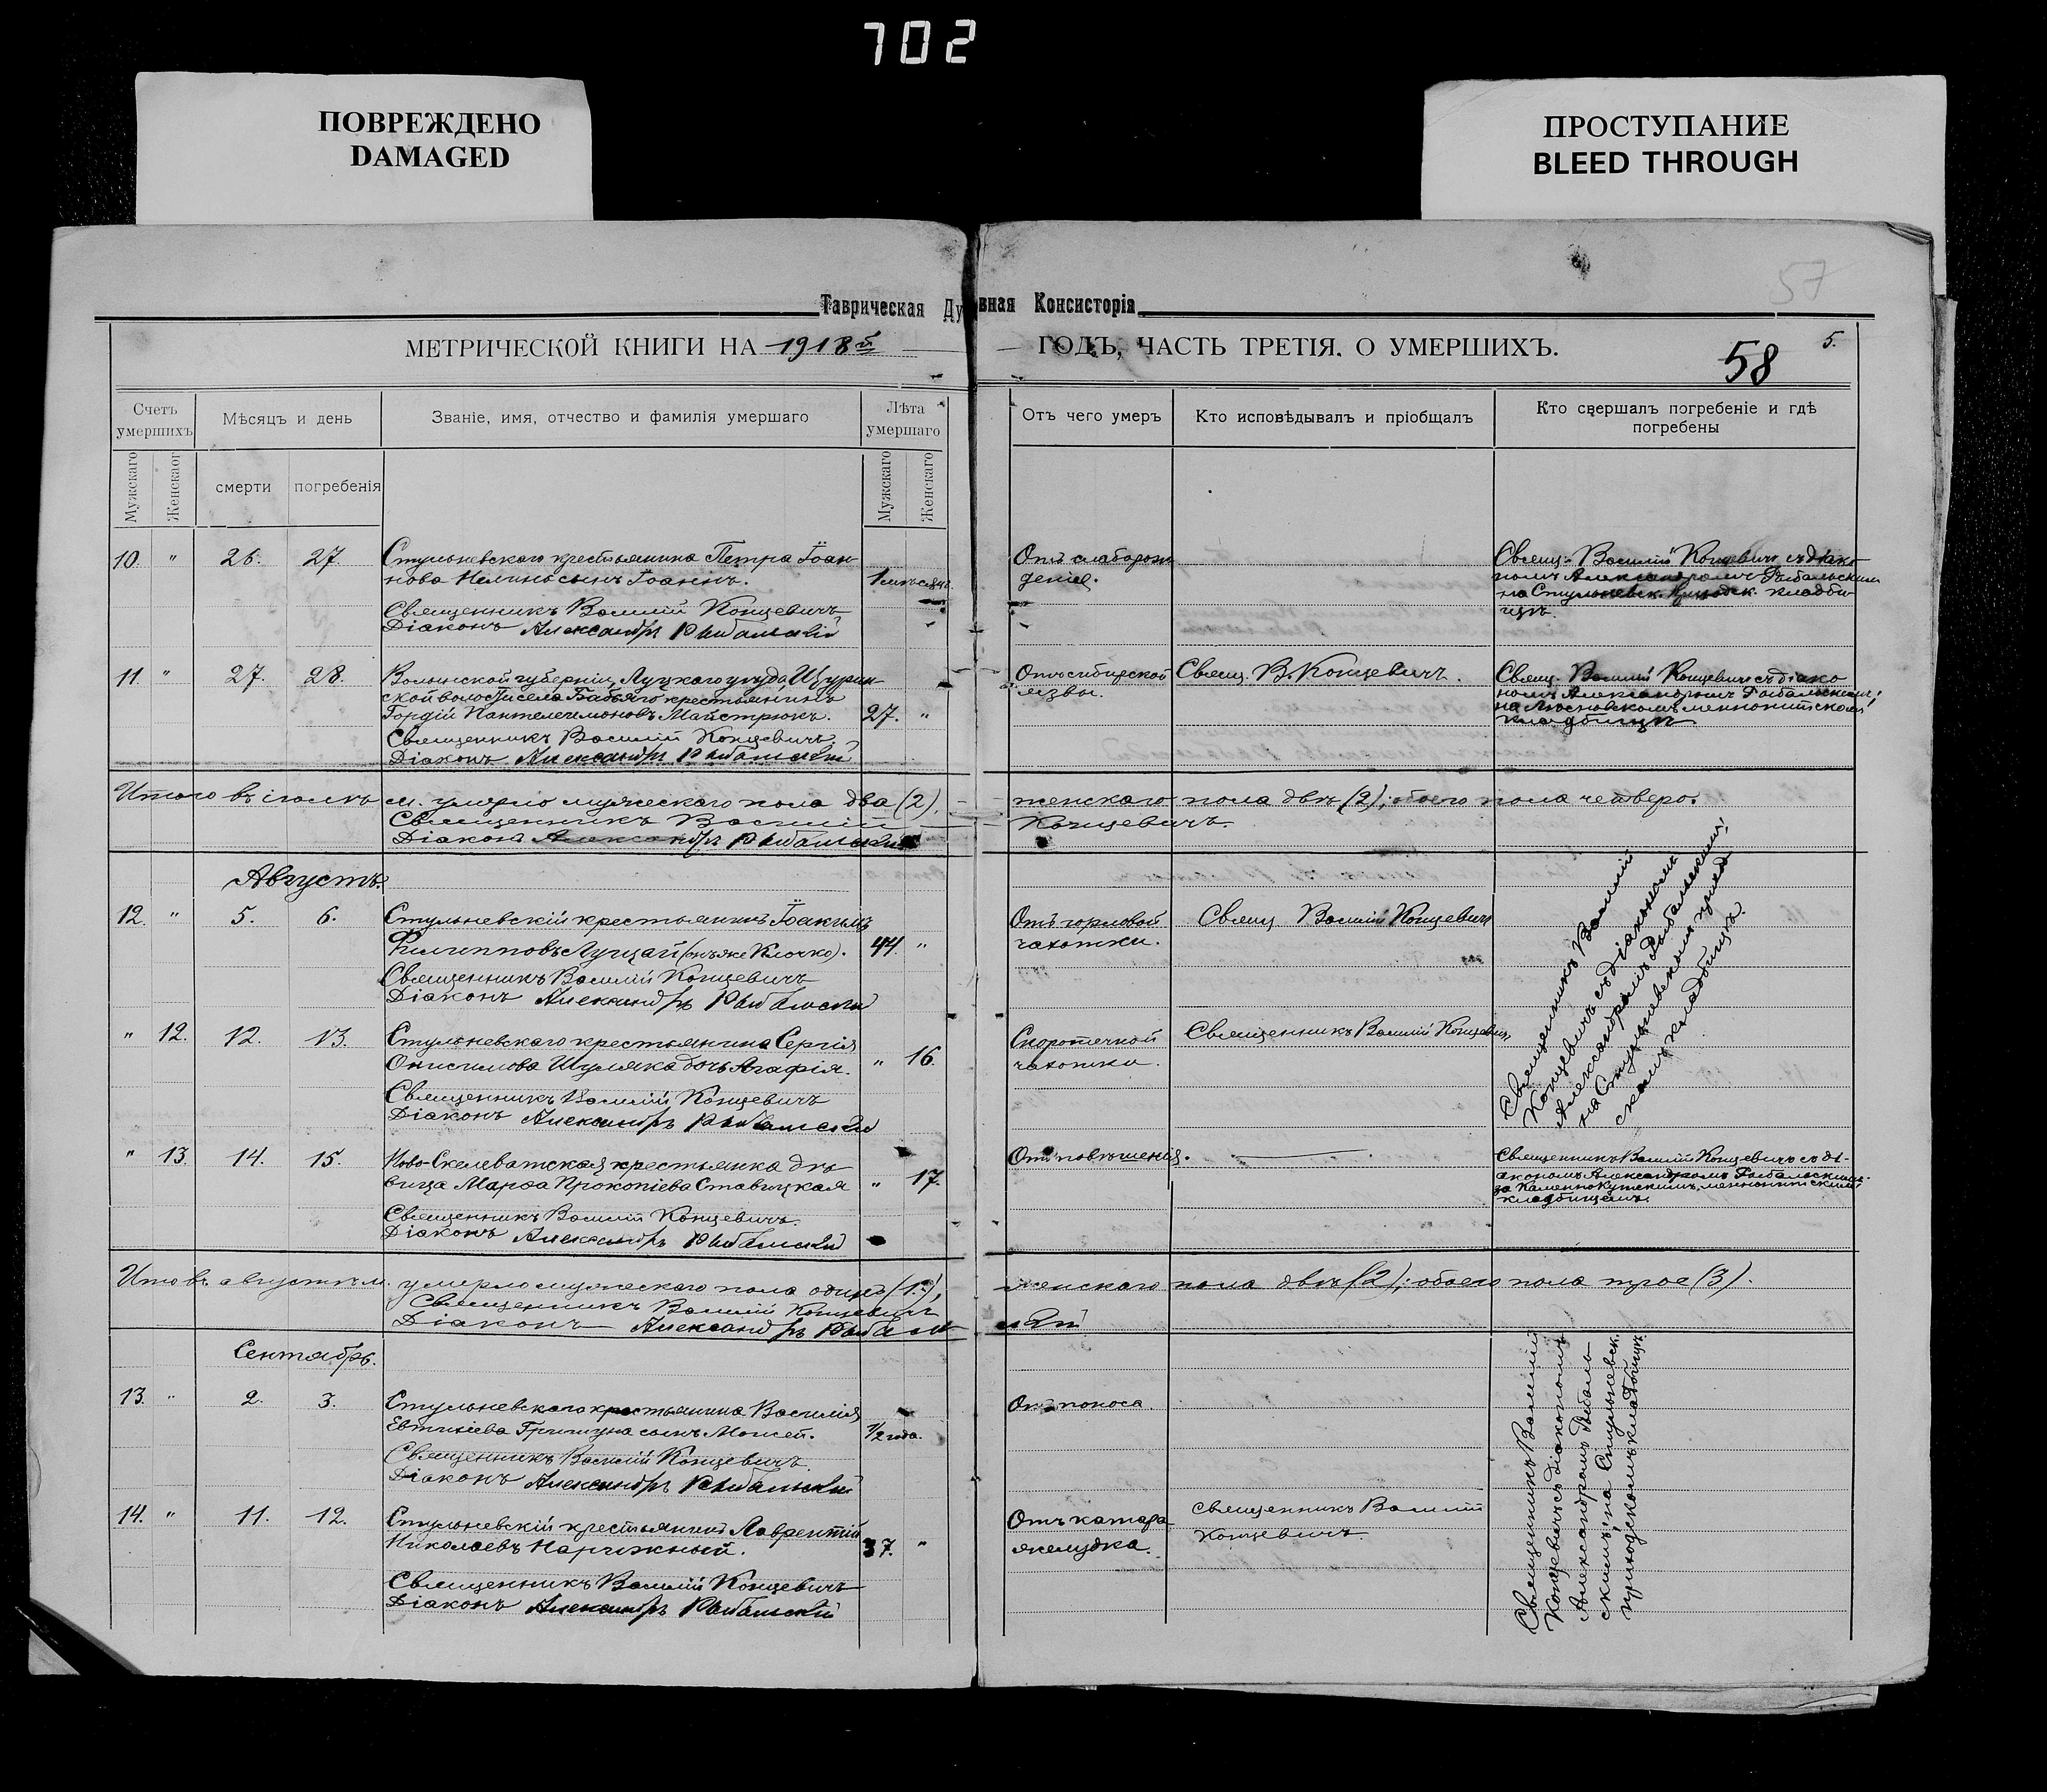 702
ПОВРЕЖДЕНО
DAMAGED
ПРОСТУПАНИЕ
BLEED THROUGH
57
Таврическая Ду
вная Консисторія
МЕТРИЧЕСКОЙ КНИГИ НА 1918й
ГОДЪ, ЧАСТЬ ТРЕТІЯ. О УМЕРШИХЪ.
58
5.
Счетъ умершихъ
Мѣсяцъ и день
Званіе, имя, отчество и фамилія умершаго
Лѣта умершаго
Отъ чего умеръ
Кто исповѣдывалъ и пріобщалъ
Кто свершалъ погребеніе и гдѣ погребены
Мужскаго
Женскаог
смерти
погребенія
Мужскаго
Женскаго
10 " 26. 27. Стульневскаго крестьянина Петра Іоан-
нова сынъ Іоаннъ. 1 мѣсяцъ.
Священникъ Василій Концевичъ
Діаконъ Александръ Рыбальскій
Отъ слаборож
денія.
Свящ. Василій Концевичъ съ діако
номъ Александромъ Рыбальскимъ
на Стульневск. приходск. кладби
щѣ.
11 " 27. 28. Волынской губерніи, Луцкаго уѣзда, Щурин
ской волости села Бабьяго крестьянинъ
Гордій Пантелеимоновъ Майстрюкъ. 27. "
Священникъ Василій Концевичъ
Діаконъ Александръ Рыбальскій
Отъ сибирской
язвы.
Свящ. В. Концевичъ.
Свящ. Василій Концевичъ съ діако
номъ Александромъ Рыбальскимъ;
на меннонитскомъ
кладбищѣ.
Итого въ іюлѣ м. умерло мужескаго пола два (2),
женскаго пола двѣ (2); обоего пола четверо.
Священникъ Василій
Концевичъ.
Діаконъ Александръ Рыбальскій
Августъ.
12. " 5. 6. Стульневскій крестьянинъ Іоакимъ
Филипповъ Луцай (онъ же Клочко). 44. "
Священникъ Василій Концевичъ
Діаконъ Александръ Рыбальскій
Отъ горловой
чахотки.
Свящ. Василій Концевичъ
Священникъ Василій
Концевичъ съ діакономъ
Александромъ Рыбальскимъ;
на Стульневскомъ приход
скомъ кладбищѣ.
" 12. 12. 13. Стульневскаго крестьянина Сергія
Онисимова Шуляка дочь Агафія. " 16.
Священникъ Василій Концевичъ
Діаконъ Александръ Рыбальскій
Скоротечной
чахотки.
Священникъ Василій Концевичъ
" 13. 14. 15. Ново-Скелеватская крестьянка дѣ-
вица Марѳа Прокопіева Ставицкая " 17.
Священникъ Василій Концевичъ.
Діаконъ Александръ Рыбальскій
Отъ повѣшенія.
Священникъ Василій Концевичъ съ ді-
акономъ Александромъ Рыбальскимъ
за меннонитскимъ
кладбищемъ.
Итого въ августѣ м. умерло мужескаго пола одинъ (1),
женскаго пола двѣ (2); обоего пола трое (3).
Священникъ Василій Концевичъ
Діаконъ Александръ Рыбаль
скій
Сентябрь.
13. " 2. 3. Стульневскаго крестьянина Василія
Евтихіева сынъ Моисей. 1/2 года.
Священникъ Василій Концевичъ.
Діаконъ Александръ Рыбальскій
Отъ поноса.
Священникъ Василій
Концевичъ съ діакономъ
Александромъ Рыбаль
скимъ; на Стульневск.
приходскомъ кладбищѣ.
14. " 11. 12. Стульневскій крестьянинъ Лаврентій
Николаевъ Нарижный. 37. "
Священникъ Василій Концевичъ
Діаконъ Александръ Рыбальскій
Отъ катара
желудка.
Священникъ Василій
Концевичъ.